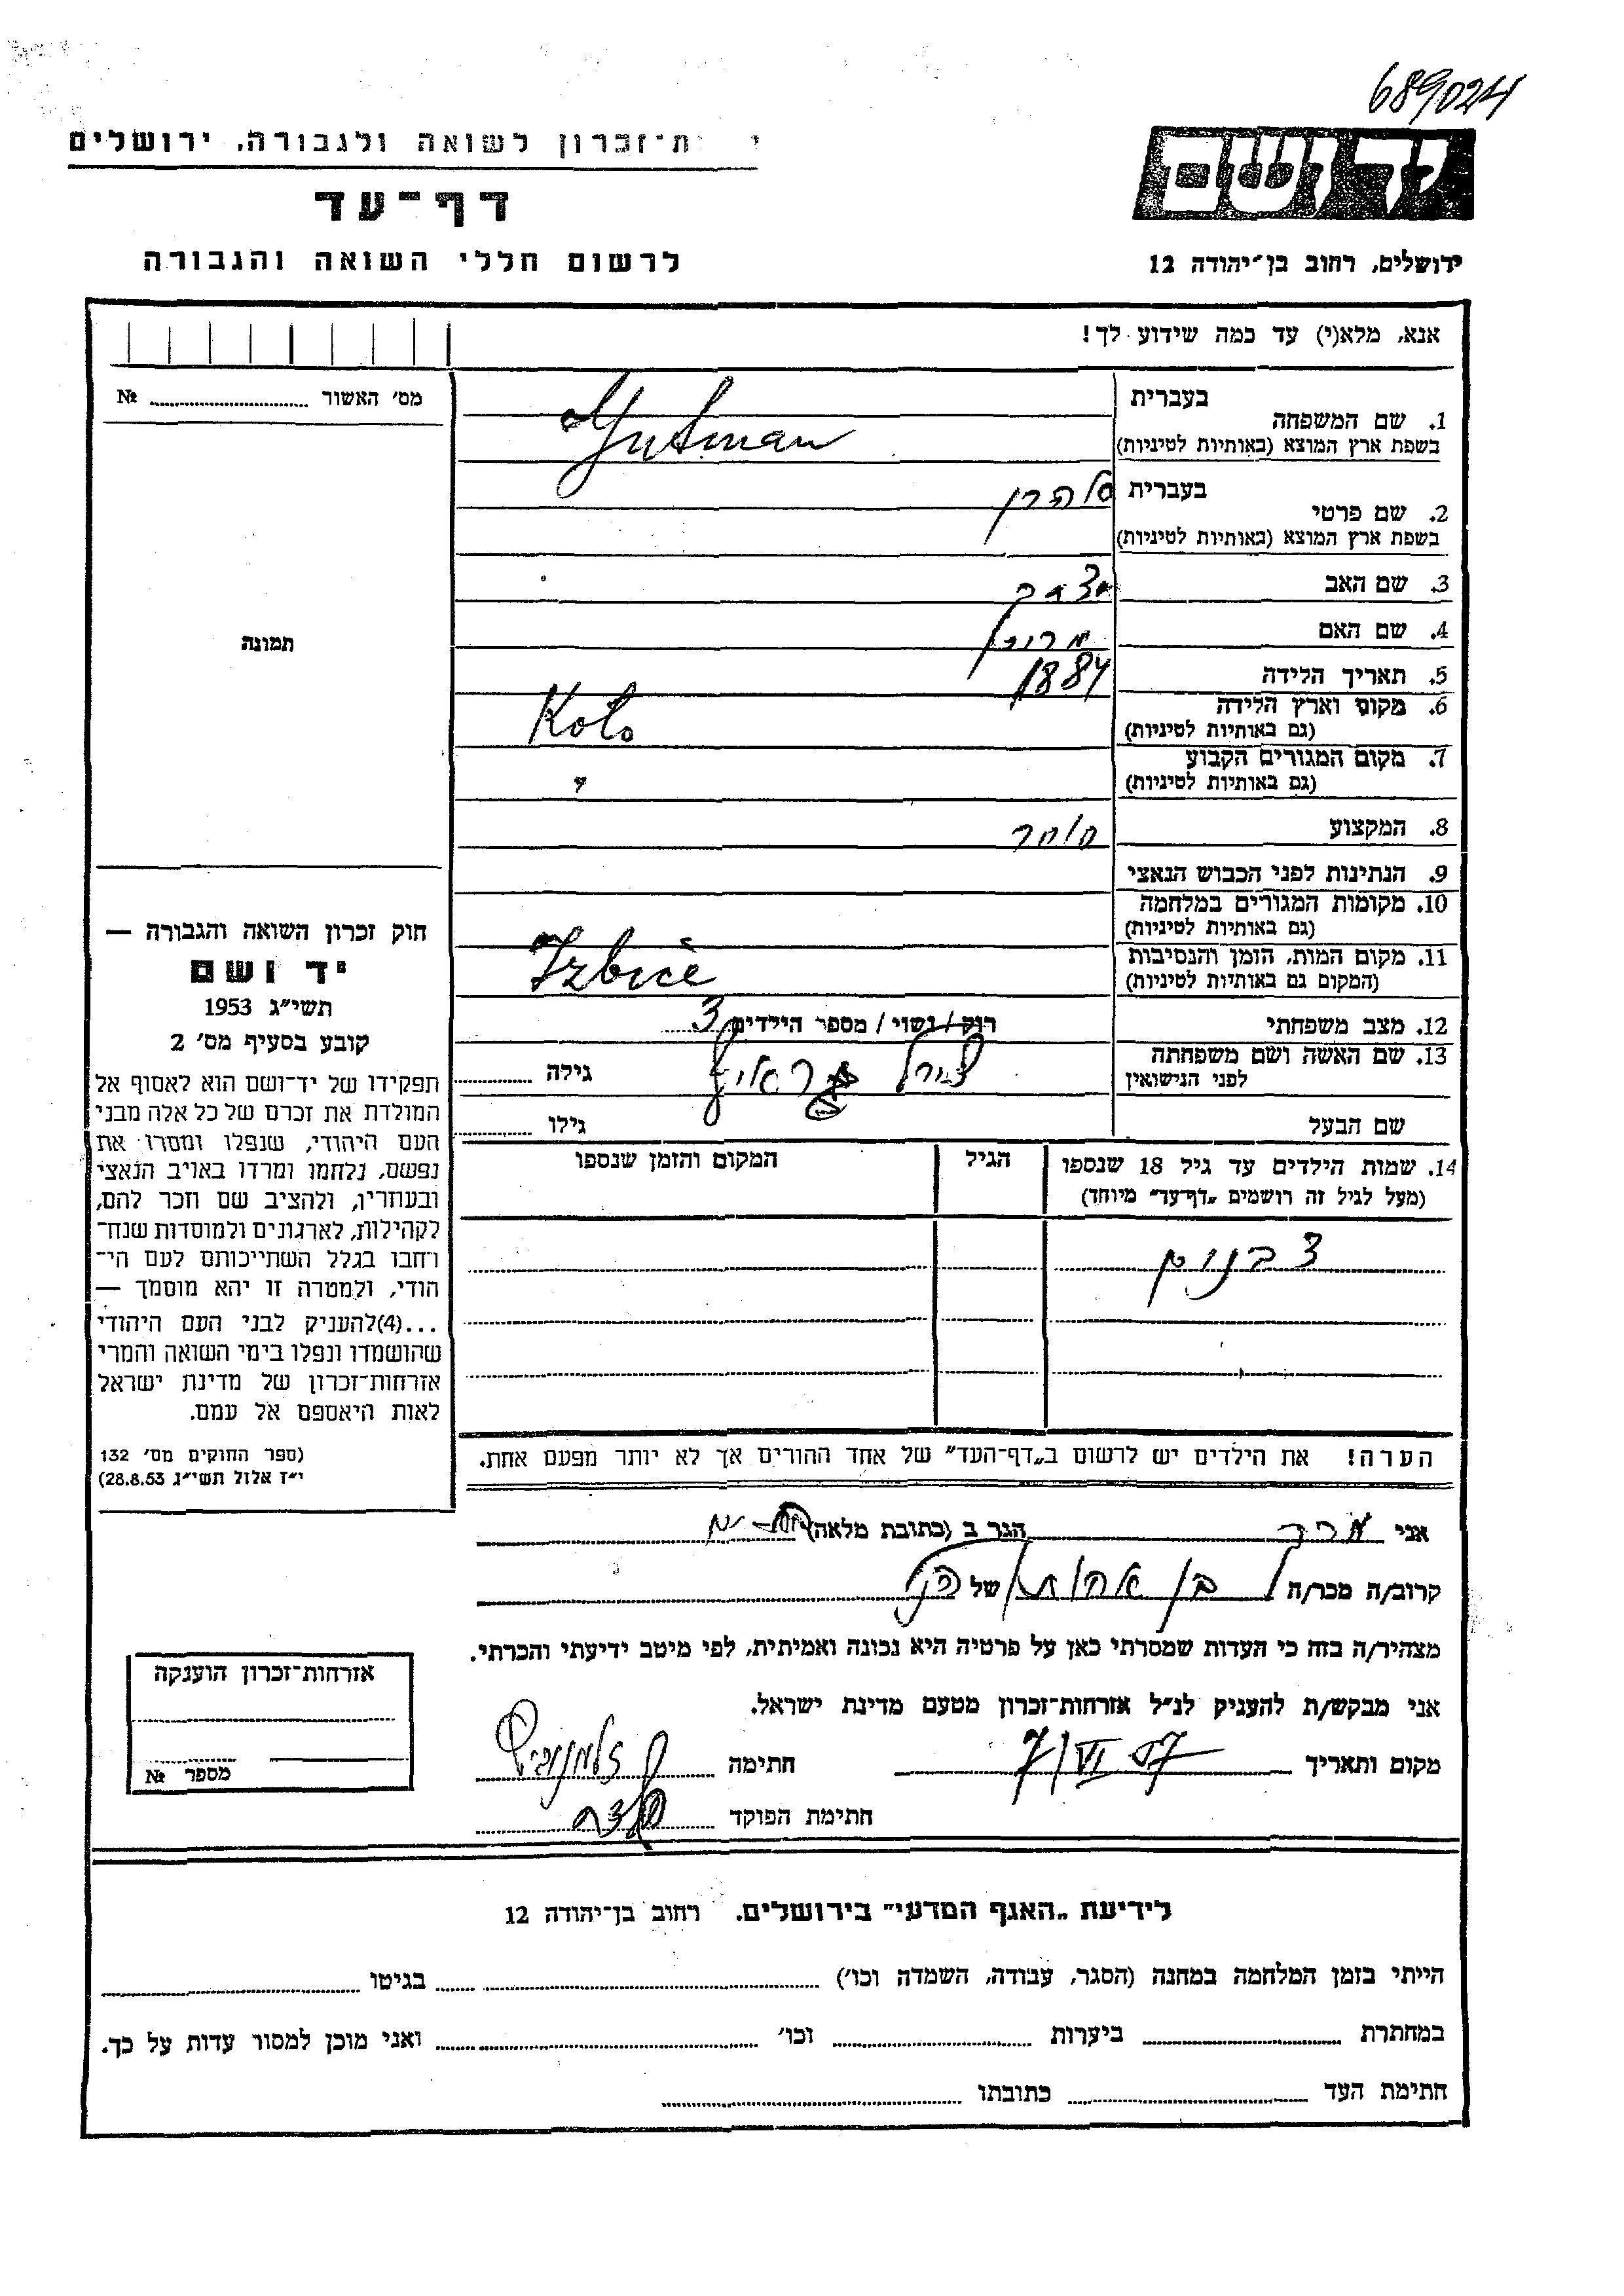 689024
ת־זכרון לשואה ולגבורה, ירושלים
דף־עד
לרשום חללי השואה והגבורה
יד ושם
ירושלים, רחוב בן־יהודה 12
אנא, מלא(י) עד כמה שידוע לך!
מס׳ האשור № 
1. שם המשפחה בעברית
בשפת ארץ המוצא (באותיות לטיניות) Gutman
2. שם פרטי בעברית אהרן
בשפת ארץ המוצא (באותיות לטיניות)
3. שם האב יצחק
4. שם האם
5. תאריך הלידה 1884
6. מקום וארץ הלידה (גם באותיות לטיניות) Koło
7. מקום המגורים הקבוע (גם באותיות לטיניות) "
8. המקצוע סוחר
9. הנתינות לפני הכבוש הנאצי
10. מקומות המגורים במלחמה (גם באותיות לטיניות)
11. מקום המות, הזמן והנסיבות (המקום גם באותיות לטיניות) Izbice
12. מצב משפחתי רוק/נשוי/מספר הילדים 3
13. שם האשה ושם משפחתה לפני הנישואין גילה
שם הבעל גילו
14. שמות הילדים עד גיל 18 שנספו
(מעל לגיל זה רושמים „דף־עד״ מיוחד)
הגיל
המקום והזמן שנספו
3 בנים
הערה! את הילדים יש לרשום ב„דף־העד״ של אחד ההורים אך לא יותר מפעם אחת.
תמונה
חוק זכרון השואה והגבורה —
יד ושם
תשי״ג 1953
קובע בסעיף מס׳ 2
תפקידו של יד־ושם הוא לאסוף אל
המולדת את זכרם של כל אלה מבני
העם היהודי, שנפלו ומסרו את
נפשם, נלחמו ומרדו באויב הנאצי
ובעוזריו, ולהציב שם וזכר להם,
לקהילות, לארגונים ולמוסדות שנח־
רחבו בגלל השתייכותם לעם הי־
הודי, ולמטרה זו יהא מוסמך —
...(4) להעניק לבני העם היהודי
שהושמדו ונפלו בימי השואה והמרי
אזרחות־זכרון של מדינת ישראל
לאות היאספם אל עמם.
(ספר החוקים מס׳ 132
י״ז אלול תשי״ג 28.8.53)
אני הגר ב (כתובת מלאה)
קרוב/ה מכר/ה בן אחות של
מצהיר/ה בזה כי העדות שמסרתי כאן על פרטיה היא נכונה ואמיתית, לפי מיטב ידיעתי והכרתי.
אני מבקש/ת להעניק לנ״ל אזרחות־זכרון מטעם מדינת ישראל.
מקום ותאריך 7/VI 57 חתימה
חתימת הפוקד
אזרחות־זכרון הוענקה
מספר №
לידיעת „האגף המדעי״ בירושלים. רחוב בן־יהודה 12
הייתי בזמן המלחמה במחנה (הסגר, עבודה, השמדה וכו׳) בגיטו
במחתרת ביערות וכו׳ ואני מוכן למסור עדות על כך.
חתימת העד כתובתו